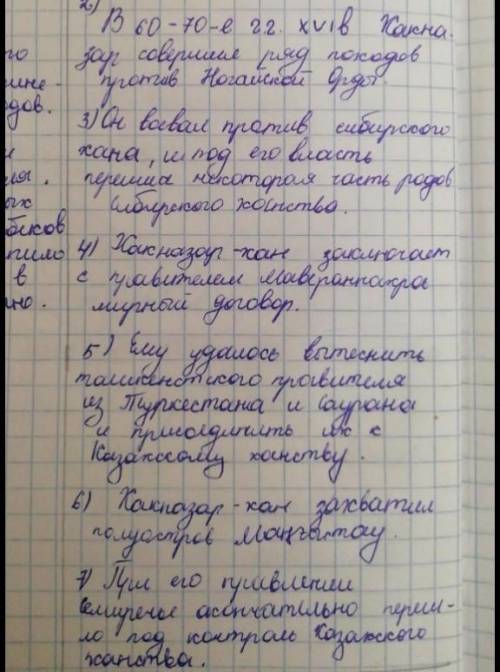 2)
В 60-70-е г.г. XVI в Хакна-
зар совершил ряд походов
против Ногайской Орды.
3) Он воевал против сибирского
хана, и под его власть
перешла некоторая часть родов
сибирского ханства.
4) Хакназар-хан заключает
с правителем Мавераннахра
мирный договор.
5) Ему удалось вытеснить
ташкентского правителя
из Туркестана и Саурана
и присоединить их к
Казахскому ханству.
6) Хакназар-хан захватил
полуостров Маңғыстау.
7) При его правлении
Семиречье окончательно переш-
ло под контроль Казахского
ханства.
го
ине-
дов.
и
ля.
ых
беков
пило
в
но.